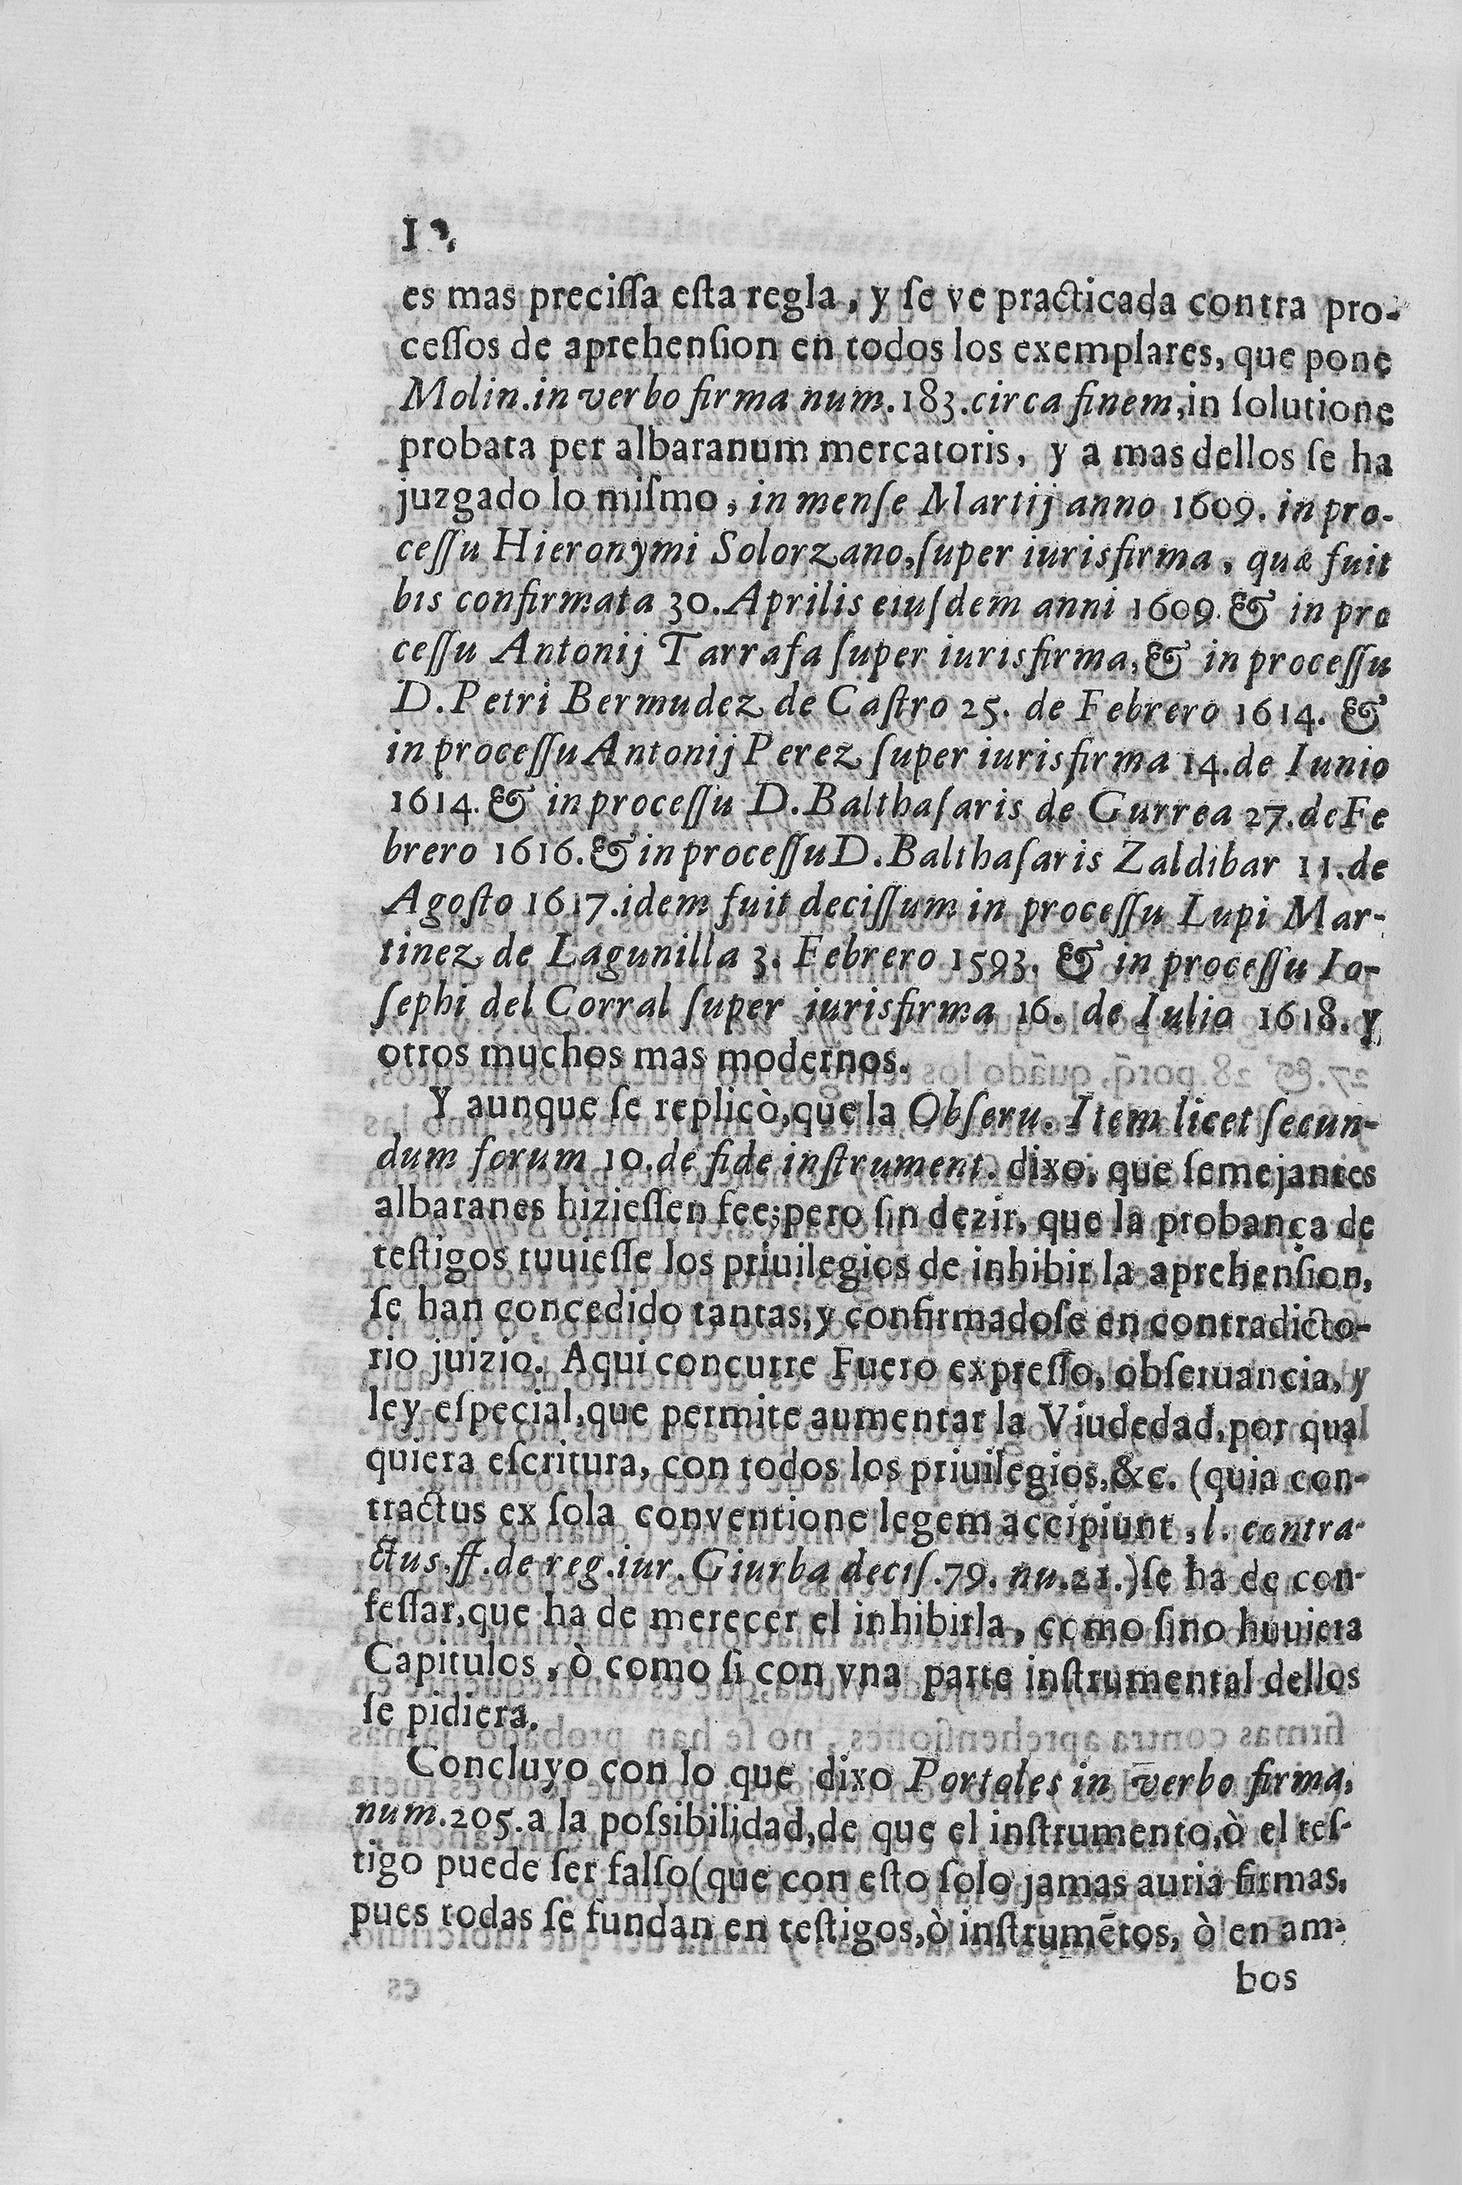 es mas precissa esta regla, y se ve practicada contra pro-
cessos de aprehension en todos los exemplares, que pone
Molin. in verbo firma num. 183. circa finem, in solutione
probata per albaranum mercatoris, y a mas dellos se ha
juzgado lo mismo, in mense Martij anno 1609. in pro-
cessu Hieronymi Solorzano, super iurisfirma, quæ fuit
bis confirmata 30. Aprilis eiusdem anni 1609. & in pro
cessu Antonij Tarrafa super iurisfirma, & in processu
D. Petri Bermudez de Castro 25. de Febrero 1614. &
in processu Antonij Perez super iurisfirma 14. de Iunio
1614. & in processu D. Balthasaris de Gurrea 27. de Fe
brero 1616. & in processu D. Balthasaris Zaldibar 11. de
Agosto 1617. idem fuit decissum in processu Lupi Mar-
tinez de Lagunilla 3. Febrero 1593. & in processu Io-
sephi del Corral super iurisfirma 16. de Iulio 1618. y
otros muchos mas modernos.
Y aunque se replicò, que la Obseru. Item licet secun-
dum forum 10. de fide instrument. dixo, que semejantes
albaranes hiziessen fee; pero sin dezir, que la probança de
testigos tuuiesse los priuilegios de inhibir la aprehension,
se han concedido tantas, y confirmadose en contradicto-
rio juizio. Aqui concurre Fuero expresso, obseruancia, y
ley especial, que permite aumentar la Viudedad, por qual
quiera escritura, con todos los priuilegios, &c. (quia con-
tractus ex sola conventione legem accipiunt, l. contra-
ctus, ff. de reg. iur. Giurba decis. 79. nu. 21.) se ha de con-
fessar, que ha de merecer el inhibirla, como sino huuiera
Capitulos, ò como si con vna parte instrumental dellos
se pidiera.
Concluyo con lo que dixo Portoles in verbo firma,
num. 205. a la possibilidad, de que el instrumento, ò el tes-
tigo puede ser falso (que con esto solo jamas auria firmas,
pues todas se fundan en testigos, ò instrumẽtos, ò en am-
bos